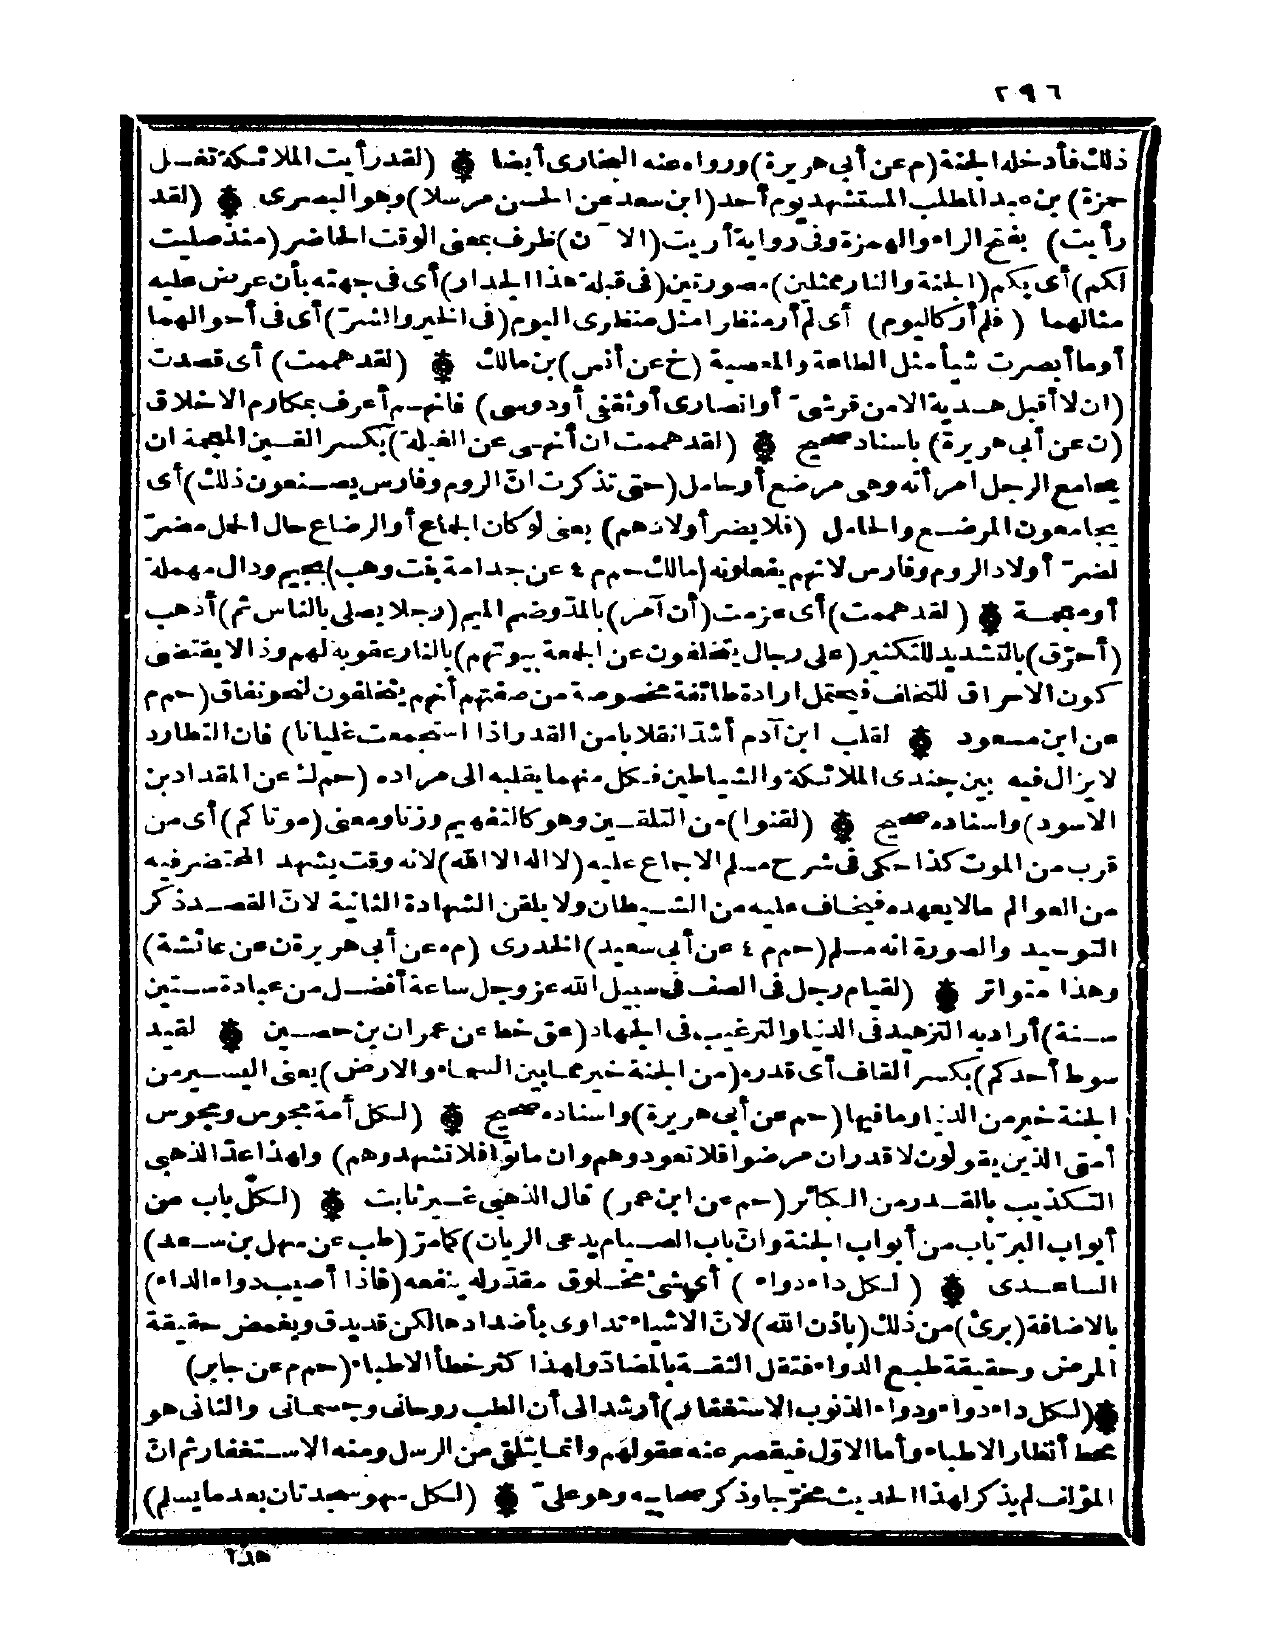 ٢٩٦
ذلك فأدخله الجنة (م عن أبي هريرة) ورواه عنه البخارى أيضا ۞ (لقد رأيت الملائكة تغسل
حمزة) بن عبد المطلب المستشهد يوم أحد (ابن سعد عن الحسن مرسلا) وهو البصرى ۞ (لقد
رأيت) بفتح الراء والهمزة وفى رواية أريت (الآن) ظرف بمعنى الوقت الحاضر (منذ صليت
لكم) أى بكم (الجنة والنار ممثلين) مصورتين (فى قبلة هذا الجدار) أى فى جهته بأن عرض عليه
مثالهما (فلم أر كاليوم) أى لم أر منظرا مثل منظرى اليوم (فى الخير والشر) أى فى أحوالهما
أوما أبصرت شيأ مثل الطاعة والمعصية (خ عن أنس) بن مالك ۞ (لقد هممت) أى قصدت
(ان لا أقبل هدية الا من قرشىّ أو انصارى أو ثقفى أو دوسى) فانهم أعرف بمكارم الاخلاق
(ن عن أبي هريرة) باسناد صحيح ۞ (لقد هممت ان أنهى عن الغيلة) بكسر الغين المعجمة ان
يجامع الرجل امرأته وهى مرضع أو حامل (حتى تذكرت انّ الروم وفارس يصنعون ذلك) أى
يجامعون المرضع والحامل (فلا يضر أولادهم) يعنى لو كان الجماع أو الرضاع حال الحمل مضرّ
لضرّ أولاد الروم وفارس لانهم يفعلونه (مالك حم م ٤ عن جدامة بنت وهب) بجيم ودال مهملة
أو معجمة ۞ (لقد هممت) أى عزمت (أن آمر) بالمدّ وضم الميم (رجلا يصلى بالناس ثم) أذهب
(أحرّق) بالتشديد للتكثير (على رجال يتخلفون عن الجمعة بيوتهم) بالنار عقوبة لهم وذا لا يقتضى
كون الاحراق للتخلف فيحتمل ارادة طائفة مخصوصة من صفتهم أنهم يتخلفون لنحو نفاق (حم م
عن ابن مسعود ۞ لقلب ابن آدم أشدّ انقلابا من القدر اذا استجمعت غليانا) فان التطارد
لا يزال فيه بين جندى الملائكة والشياطين فكل منهما يقلبه الى مراده (حم ك عن المقداد بن
الاسود) واسناده صحيح ۞ (لقنوا) من التلقين وهو كالتفهيم وزنا ومعنى (موتاكم) أى من
قرب من الموت كذا حكى فى شرح مسلم الاجماع عليه (لا اله الا الله) لانه وقت يشهد المحتضر فيه
من العوالم مالا يعهده فيخاف عليه من الشيطان ولا يلقن الشهادة الثانية لانّ القصد ذكر
التوحيد والصورة انه مسلم (حم م ٤ عن أبي سعيد) الخدرى (م ه عن أبي هريرة ن عن عائشة)
وهذا متواتر ۞ (لقيام رجل فى الصف فى سبيل الله عز وجل ساعة أفضل من عبادة ستين
سنة) أراد به التزهيد فى الدنيا والترغيب فى الجهاد (عق خط عن عمران بن حصين ۞ لقيد
سوط أحدكم) بكسر القاف أى قدره (من الجنة خير مما بين السماء والارض) يعنى اليسير من
الجنة خير من الدنيا وما فيها (حم عن أبي هريرة) واسناده صحيح ۞ (لكل أمة مجوس ومجوس
أمتى الذين يقولون لا قدر ان مرضوا فلا تعودوهم وان ماتوا فلا تشهدوهم) ولهذا عدّ الذهبى
التكذيب بالقدر من الكبائر (حم عن ابن عمر) قال الذهبى غير ثابت ۞ (لكل باب من
أبواب البرّ باب من أبواب الجنة وانّ باب الصيام يدعى الريان) كما مرّ (طب عن سهل بن سعد)
الساعدى ۞ (لكل داء دواء) أى شئ مخلوق مقدّر له ينفعه (فاذا أصيب دواء الداء)
بالاضافة (برئ) من ذلك (باذن الله) لانّ الاشياء تداوى بأضدادها لكن قد يدق ويغمض حقيقة
المرض وحقيقة طبع الدواء فتقل الثقة بالمضادّ ولهذا كثر خطأ الاطباء (حم م عن جابر)
۞ (لكل داء دواء ودواء الذنوب الاستغفار) أرشد الى أن الطب روحانى وجسمانى والثانى هو
محط أنظار الاطباء وأما الاوّل فيقصر عنه عقولهم وانما يتلقى من الرسل ومنه الاستغفار ثم انّ
المؤلف لم يذكر لهذا الحديث مخرّجا وذكر صحابيه وهو علىّ ۞ (لكل سهو سجدتان بعد ما يسلم)
هذا